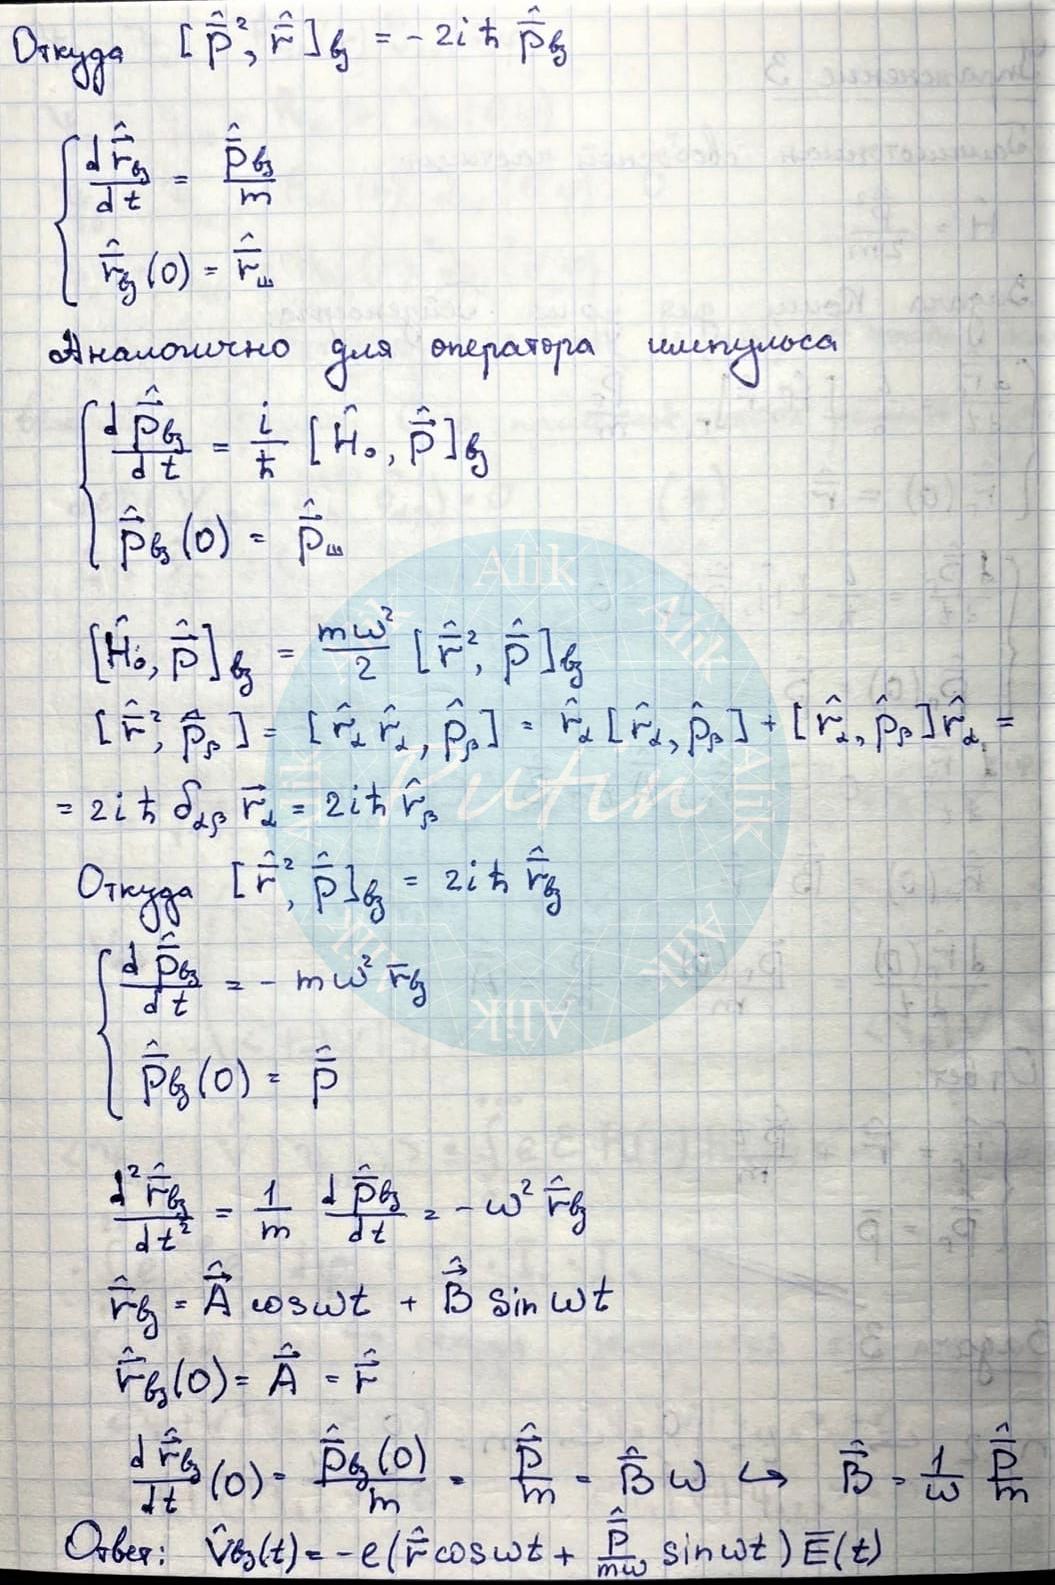 Откуда [p̂⃗², r̂⃗]вз = -2iħ p̂⃗вз
{ dr̂⃗вз/dt = p̂⃗вз/m
r̂⃗вз(0) = r̂⃗ш
Аналогично для оператора импульса
{ dp̂⃗вз/dt = i/ħ [Ĥ₀, p̂⃗]вз
p̂⃗вз(0) = p̂⃗ш
[Ĥ₀, p̂⃗]вз = mω²/2 [r̂⃗², p̂⃗]вз
[r̂⃗², p̂β] = [r̂α r̂α, p̂β] = r̂α [r̂α, p̂β] + [r̂α, p̂β] r̂α =
= 2iħ δαβ r⃗α = 2iħ r̂β
Откуда [r̂⃗², p̂⃗]вз = 2iħ r̂⃗вз
{ dp̂⃗вз/dt = - mω² r̄вз
p̂⃗вз(0) = p̂⃗
d²r̂⃗вз/dt² = 1/m dp̂⃗вз/dt = -ω² r̂⃗вз
r̂⃗вз = Â⃗ cosωt + B̂⃗ sinωt
r̂⃗вз(0) = Â⃗ = r̂⃗
dr̂⃗вз/dt (0) = p̂⃗вз(0)/m = p̂⃗/m = B̂⃗ω ↪ B̂⃗ = 1/ω p̂⃗/m
Ответ: V̂вз(t) = -e(r̂⃗ cosωt + p̂⃗/mω sinωt) E̅(t)
Alik
Alik
Alik
Alik
Alik
Alik
Alik
Alik
Putin